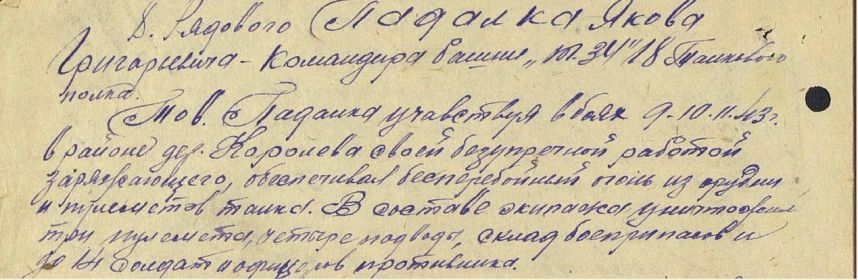 8. Рядового Падалка Якова
Григорьевича - Командира башни „Т-34" 18 Танкового
полка.
Тов. Падалка учавствуя в боях 9-10.11.43 г.
в районе дер. Королева своей безупречной работой
заряжающего, обеспечивал бесперебойный огонь из орудия
и пулеметов танка. В составе экипажа уничтожил
три пулемета, четыре подводы, склад боеприпасов и
до солдат и офицеров противника.